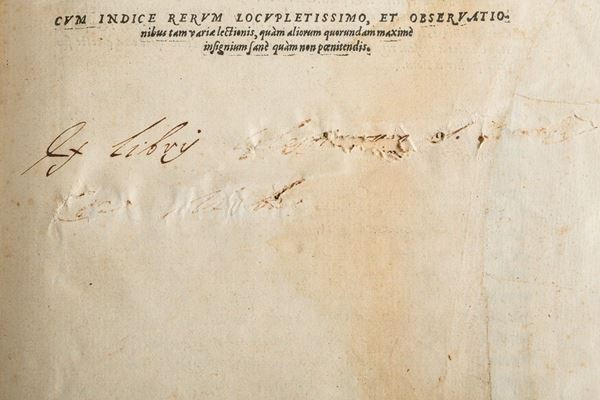 CVM INDICE RERVM LOCVPLETISSIMO, ET OBSERVATIO-
nibus tam variæ lectionis, quàm aliorum quorundam maximè
insignium sanè quàm non pœnitendis.
Ex libris